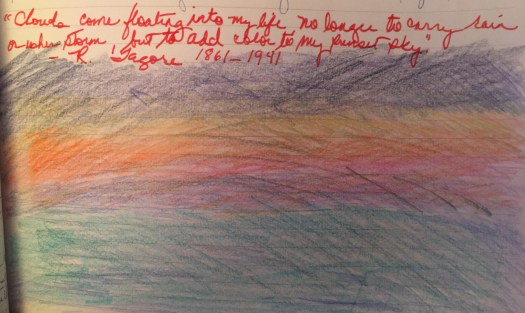 "Clouds come floating into my life no longer to carry rain
or usher storm but to add color to my sunset sky"
- R. Tagore 1861-1941